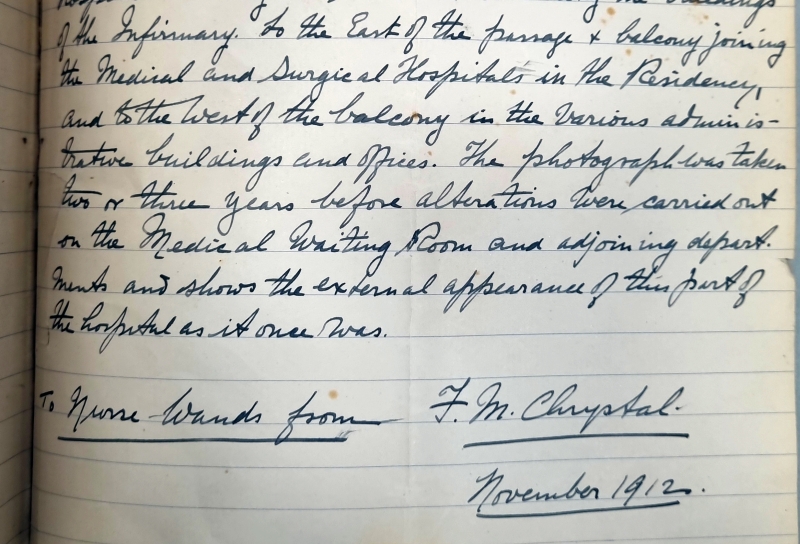 of the buildings
of the Infirmary. To the East of the passage & balcony joining
the Medical and Surgical Hospitals in the Residency,
and to the West of the balcony in the various adminis-
trative buildings and offices. The photograph was taken
two or three years before alterations were carried out
on the Medical Waiting Room and adjoining depart-
ments and shows the external appearance of this part of
the hospital as it once was.
To Nurse Wands from F. M. Chrystal.
November 1912.